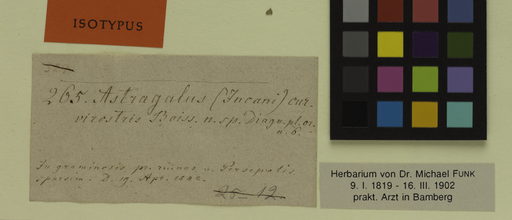 ISOTYPUS
265. Astragalus (Incani) cur-
virostris Boiss. n. sp. Diagn. pl. or.
n. 6.
In graminosis pr. ruinas u. Persepolis
sparsim. D. 19. Apr. 1842.
25-12.
Herbarium von Dr. Michael FUNK
9. I. 1819 - 16. III. 1902
prakt. Arzt in Bamberg